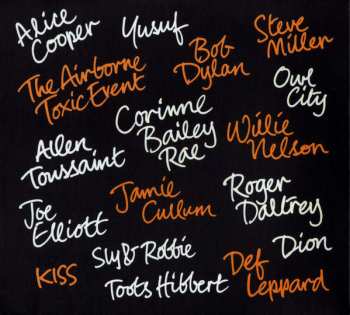 Alice
Cooper
Yusuf
Steve
Miller
Bob
Dylan
The Airborne
Toxic Event
Owl
City
Corinne
Bailey
Rae
Willie
Nelson
Allen
Toussaint
Jamie
Cullum
Roger
Daltrey
Joe
Elliott
Sly & Robbie
Dion
KISS
Toots Hibbert
Def
Leppard